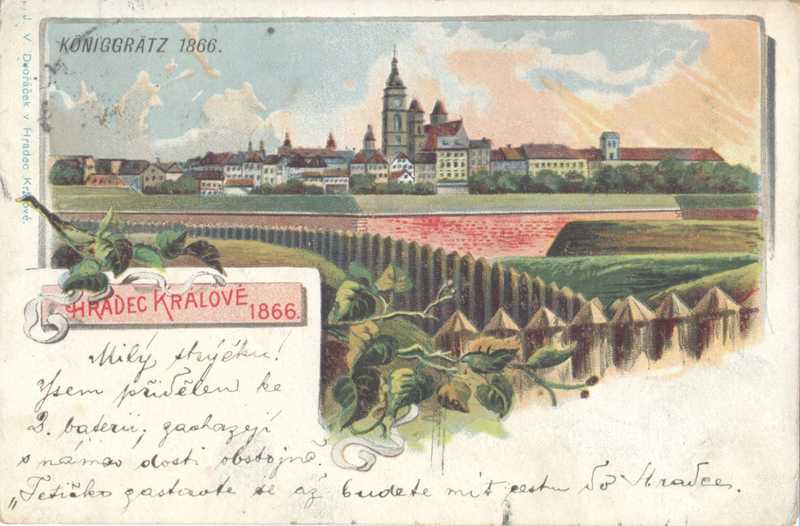 KÖNIGGRÄTZ 1866.
J. V. Dvořáček v Hradec Králové.
HRADEC KRÁLOVÉ
1866.
Milý strýčku!
Jsem přidělen ke
2. baterii, zacházejí
s námi dosti obstojně.
„Tetičko zastavte se až budete mít cestu do Hradce.